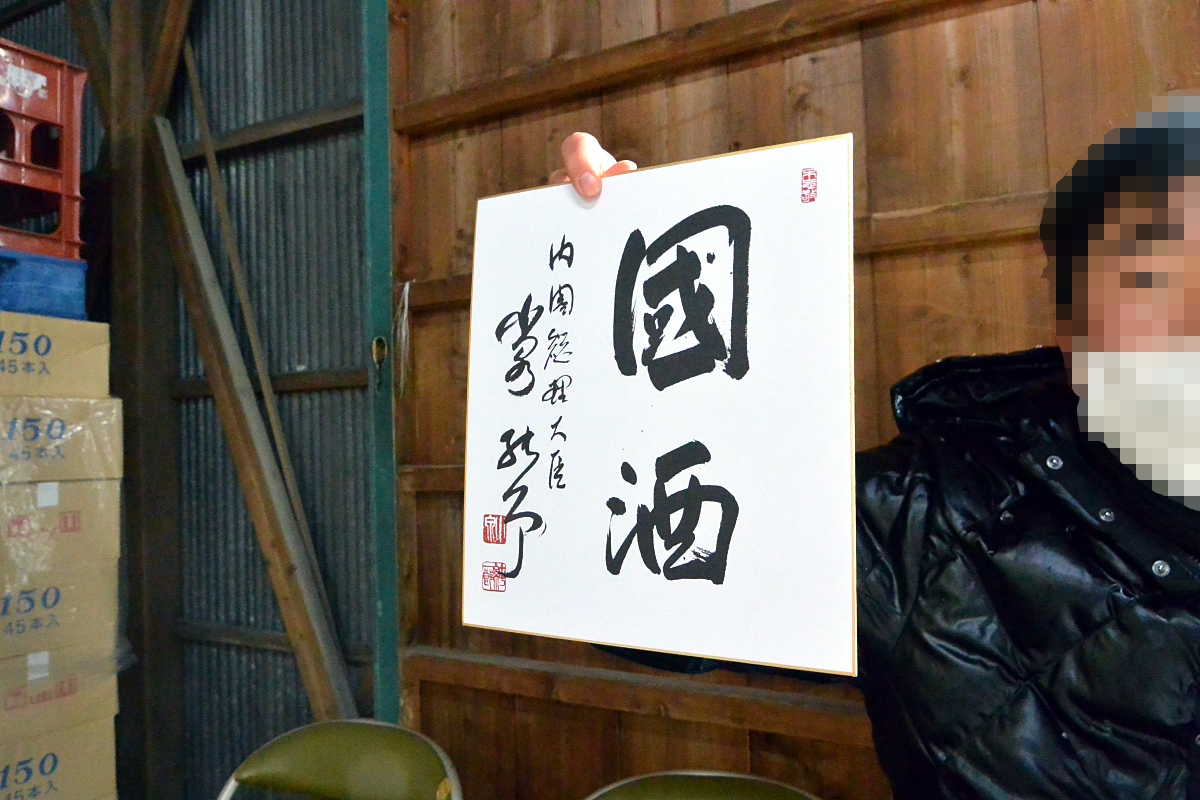 國酒
内閣總理大臣
150
45本入
150
45本入
150
45本入
150
45本入